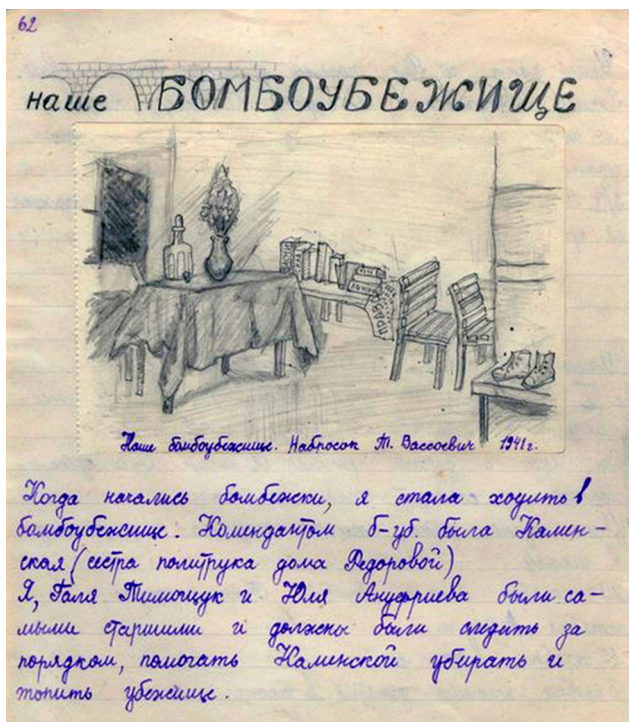 62
наше БОМБОУБЕЖИЩЕ
ПРАВДА
Наше бомбоубежище. Набросок Т. Вассоевич 1941 г.
Когда начались бомбежки, я стала ходить в
бомбоубежище. Комендантом б-уб. была Камен-
ская (сестра политрука дома Федоровой)
Я, Галя Тимощук и Юля Ануфриева были са-
мыми старшими и должны были следить за
порядком, помогать Каменской убирать и
топить убежище.